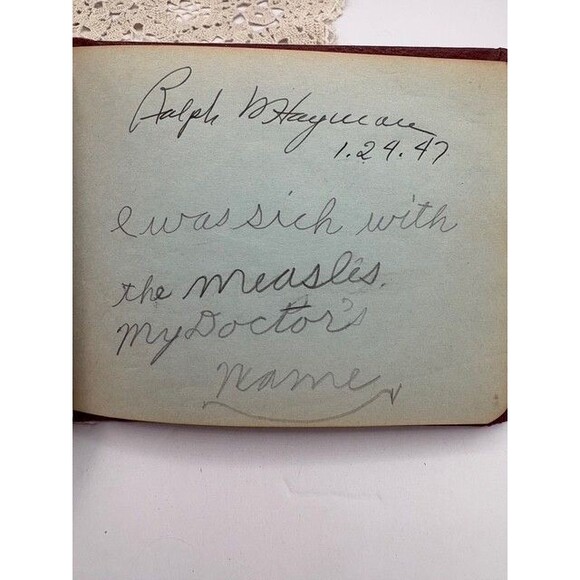 Ralph W Hayman
1.24.47
I was sick with
the measles.
My Doctor's
Name